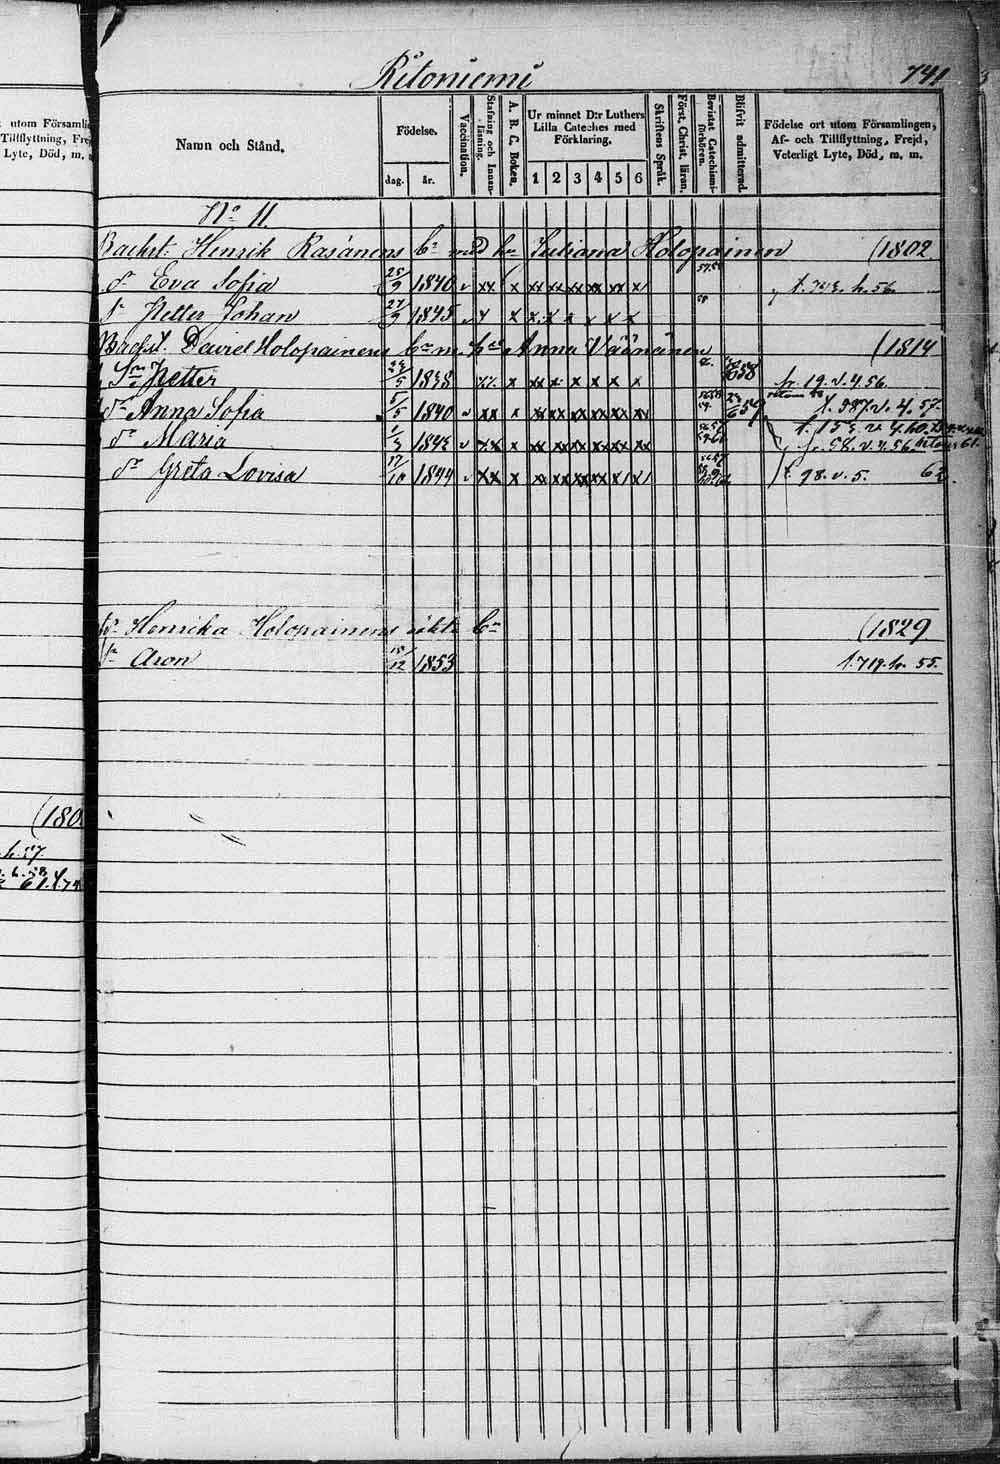 Ritoniemi 741
utom Församli
Tillflyttning, Fre
Lyte, Död, m.
Namn och Stånd.
Födelse.
dag. år.
Vaccination.
Stafning och Innanläsning.
A. B. C. Boken.
Ur minnet D:r Luthers Lilla Cateches med Förklaring.
1 2 3 4 5 6
Skriftens Språk.
Först. Christ. läran.
Bevistat Catechismiförhören.
Blifvit admitterad.
Födelse ort utom Församlingen, Af- och Tillflyttning, Frejd, Veterligt Lyte, Död, m. m.
No 11.
Backst. Henrik Räsänens Br med hu Juliana Holopainen (1802
dr Eva Sofia 25/9 1840 v xx x xx xx xx xx xx x 57.58 t. 743. h. 56
Sn Petter Johan 27/9 1845 58
Backst. David Holopainens Br m. hu Anna Väänänen (1814
Sn Petter 1838 x x 58 fr. 19. v. 4. 56.
dr Anna Sofia 5/5 1840 v xx x xx xx xx xx xx xx t. 587. v. 4. 57.
dr Maria 1842 v xx x xx xx xx xx xx xx t. 153. v. 4. 60.
58. v. 4. 56. 61.
dr Greta Lovisa 17/10 1844 v xx x xx xx xx xx xx x t. 98. v. 5. 62.
dr Henrika Holopainens oäkta Br (1829
Sn Aron 18/12 1853 t. 719. h. 55.
(180
h. 57